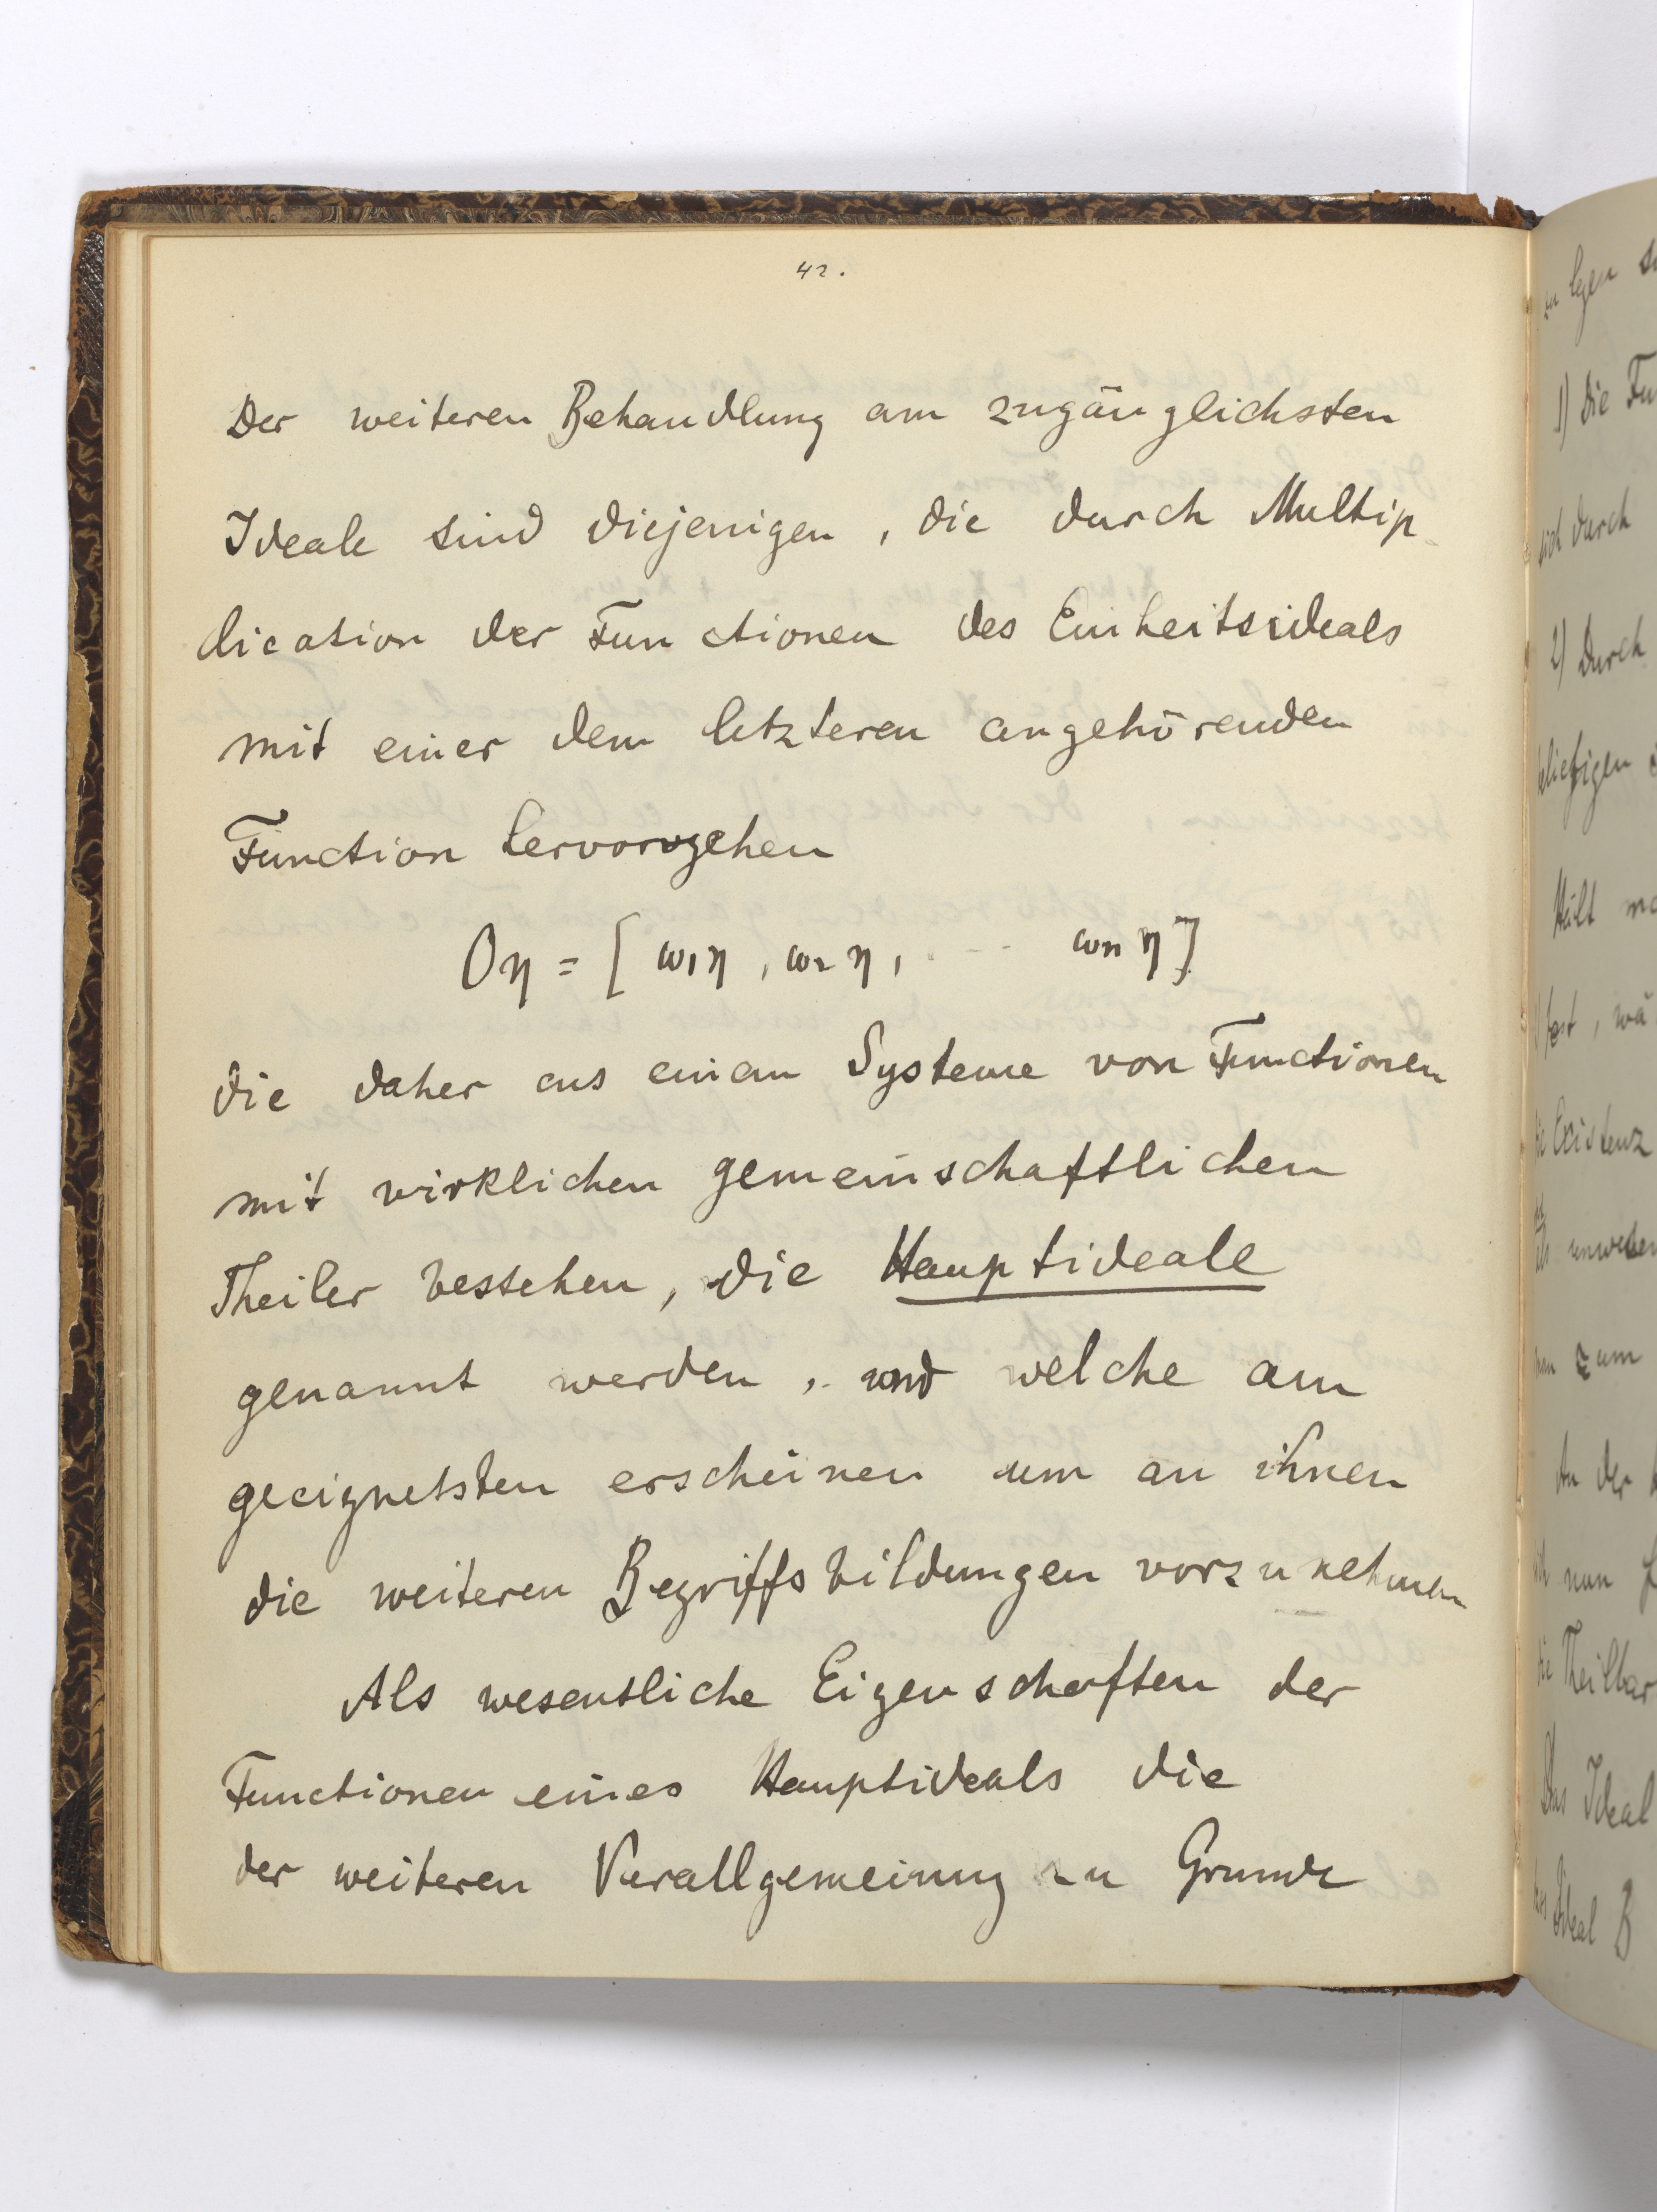 42.
Der weiteren Behandlung am zugänglichsten
Ideale sind diejenigen, die durch Multip-
lication der Functionen des Einheitsideals
mit einer dem letzteren angehörenden
Function hervorgehen
Oη = [ω₁η, ω₂η, . . . ωₙη]
die daher aus einem Systeme von Functionen
mit wirklichen gemeinschaftlichen
Theiler bestehen, die Hauptideale
genannt werden, und welche am
geeignetsten erscheinen um an ihnen
die weiteren Begriffsbildungen vorzunehmen
Als wesentliche Eigenschaften der
Functionen eines Hauptideals die
der weiteren Verallgemeinung zu Grunde
1) Die
sich durch
2) Durch
beliebigen
Hält
fest, wä
die Existenz
zum
An der
nun
die Theilbar
Das Ideal
Ideal B